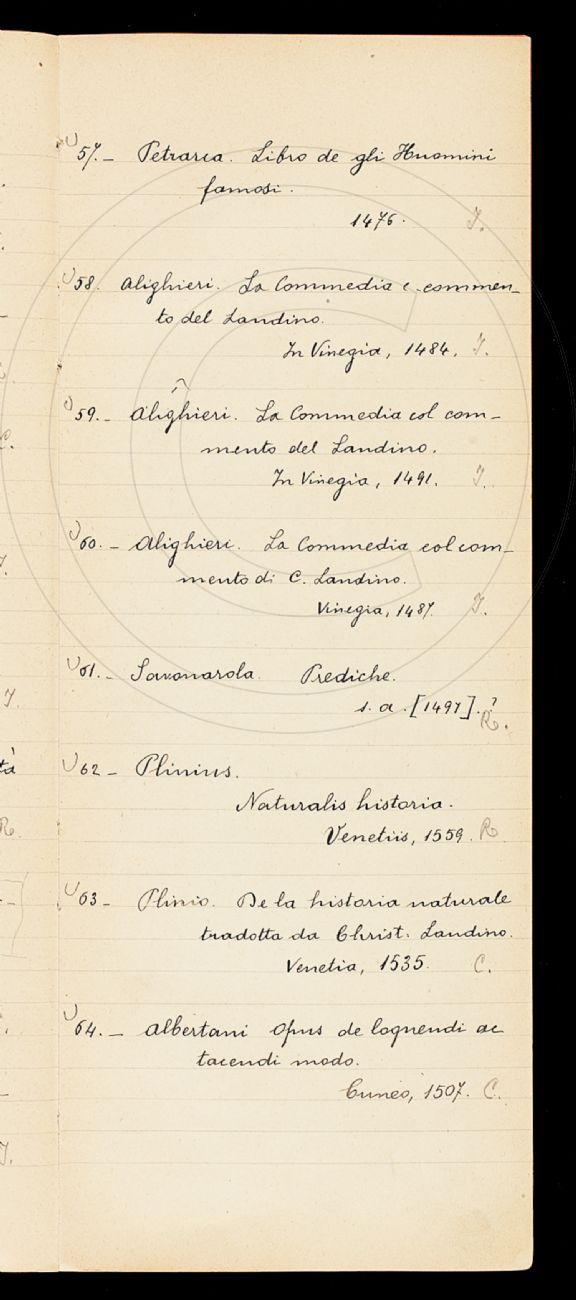 57. - Petrarca. Libro de gli Huomini
famosi.
1476. I.
58. Alighieri. La Commedia c. commen-
to del Landino.
In Vinegia, 1484. I.
59. - Alighieri. La Commedia col com-
mento del Landino.
In Vinegia, 1491. I.
60. - Alighieri. La Commedia col com-
mento di C. Landino.
Vinegia, 1487. I.
61. - Savonarola. Prediche.
s. a. [1497].?
R.
62 - Plinius.
Naturalis historia.
Venetiis, 1559. R
63 - Plinio. De la historia naturale
tradotta da Christ. Landino.
Venetia, 1535. C.
64. - Albertani Opus de loquendi ac
tacendi modo.
Cuneo, 1507. C.